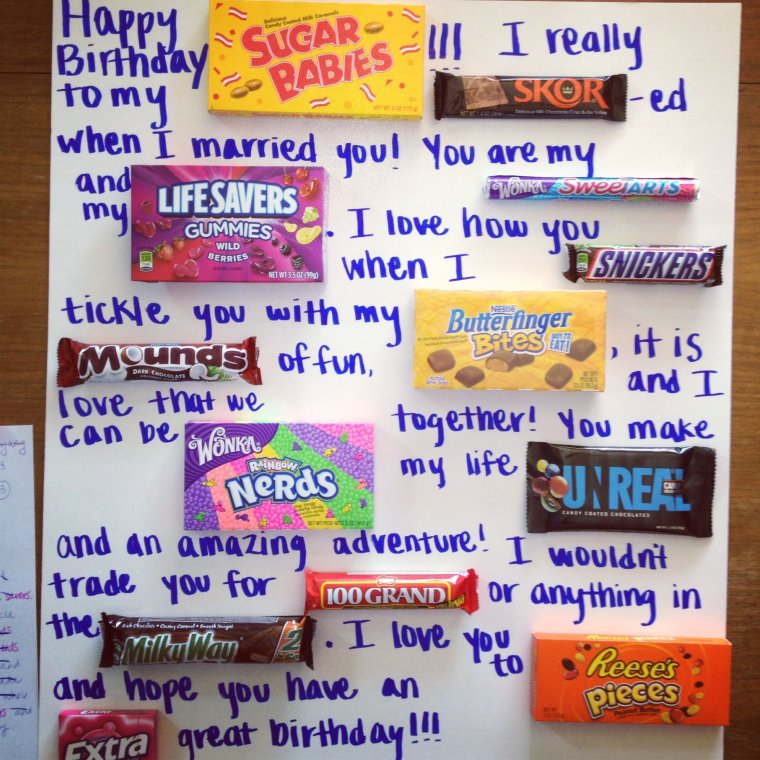 Happy
Birthday
to my
Delicious
Candy Coated Milk Caramels
SUGAR
BABIES
!!! I really
SKOR
-ed
when I married you! You are my
and
my
WONKA SWEETARTS
LIFE SAVERS
GUMMIES
WILD
BERRIES
NET WT 3.5 OZ (99g)
. I love how you
when I
SNICKERS
tickle you with my
Nestlé
Butterfinger
Bites
EASY TO
EAT!
Mounds
DARK CHOCOLATE
of fun,
, it is
and I
love that we
can be
together! You make
my life
WONKA
RAINBOW
NERDS
UNREAL
CANDY COATED CHOCOLATES
and an amazing adventure! I wouldn't
trade you for
100 GRAND
or anything in
the
Rich Chocolate • Creamy Caramel • Smooth Nougat
Milky Way
2
to Go
. I love you
to
Reese's
pieces
Peanut Butter
and hope you have an
Extra
great birthday!!!